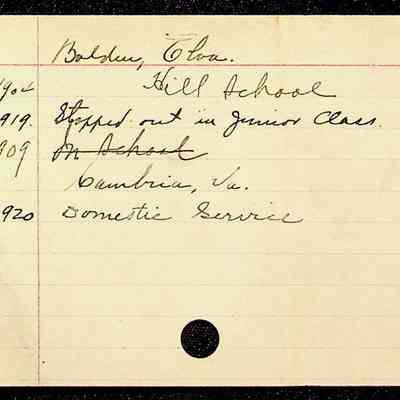 Bolden, Elva.
1904 Hill School
1919. Stopped out in Junior Class.
1909 In School
Cambria, Va.
1920 Domestic Service